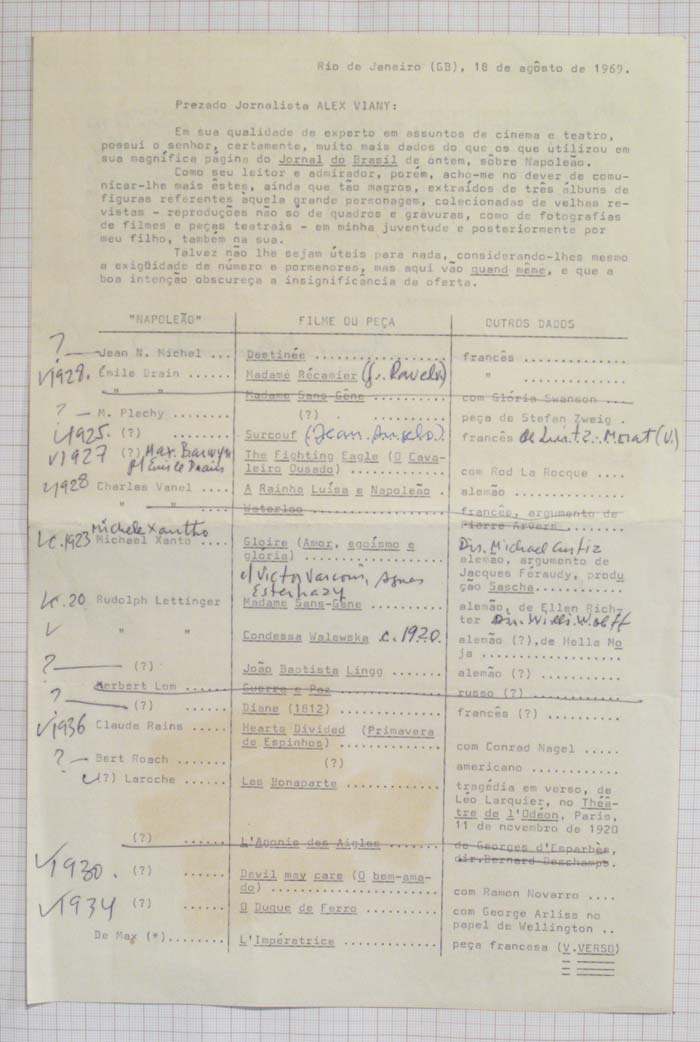 Rio de Janeiro (GB), 18 de agôsto de 1969.
Prezado Jornalista ALEX VIANY:
Em sua qualidade de experto em assuntos de cinema e teatro,
possui o senhor, certamente, muito mais dados do que os que utilizou em
sua magnífica página do Jornal do Brasil de ontem, sôbre Napoleão.
Como seu leitor e admirador, porém, acho-me no dever de comu-
nicar-lhe mais êstes, ainda que tão magros, extraídos de três álbuns de
figuras referentes àquela grande personagem, colecionadas de velhas re-
vistas - reproduções não só de quadros e gravuras, como de fotografias
de filmes e peças teatrais - em minha juventude e posteriormente por
meu filho, também na sua.
Talvez não lhe sejam úteis para nada, considerando-lhes mesmo
a exigüidade de número e pormenores, mas aqui vão quand meme, e que a
boa intenção obscureça a insignificância da oferta.
"NAPOLEÃO" FILME OU PEÇA OUTROS DADOS
? — Jean N. Michel ... Destinée ................. francês ..............
√1928. Émile Drain ...... Madame Récamier (f. Ravel) "
" " Madame Sans-Gêne ........ com Glória Swanson ...
? — M. Plechy ........ (?) ........ peça de Stefan Zweig .
√1925. (?) ...... Surcouf (Jean Angelo). francês de Luitz-Morat (V.)
√1927 (?) Max. Barwyn The Fighting Eagle (O Cava-
p/ Emile Drain leiro Ousado) ........... com Rod La Rocque ....
√1928 Charles Vanel .... A Rainha Luísa e Napoleão . alemão ..............
" " .... Waterloo ................ francês, argumento de
Pierre Arvers
Michele Xantho
√c.1923 Michael Xanto .... Gloire (Amor, egoísmo e Dir. Michael Curtiz
glória) ................. alemão, argumento de
c/ Victor Varconi, Agnes Jacques Féraudy, produ
Esterhazy ção Sascha............
√c.20 Rudolph Lettinger Madame Sans-Gêne ........ alemão, de Ellen Rich-
ter Dir. Willi Wolff
√ " " Condessa Walewska c. 1920. alemão (?),de Hella Mo
ja ...................
? — (?) ...... João Baptista Lingg ..... alemão (?) ...........
Herbert Lom ...... Guerra e Paz ............ russo (?) ............
? — (?) ...... Diane (1812) ............ francês (?) ..........
√1936 Claude Rains ..... Hearts Divided (Primavera
de Espinhos) ............ com Conrad Nagel .....
? — Bert Roach ....... (?) americano ...........
√(?) Laroche ...... Les Bonaparte ........... tragédia em verso, de
Léo Larquier, no Théâ-
tre de l'Odéon, Paris,
11 de novembro de 1920
(?) ...... L'Agonie des Aigles ..... de Georges d'Esparbès,
dir.Bernard Deschamps.
√1930. (?) ...... Devil may care (O bem-ama-
do) ..................... com Ramon Novarro ....
√1934 (?) ...... O Duque de Ferro ........ com George Arliss no
papel de Wellington ..
De Max (*)....... L'Impératrice ........... peça francesa (V.VERSO)